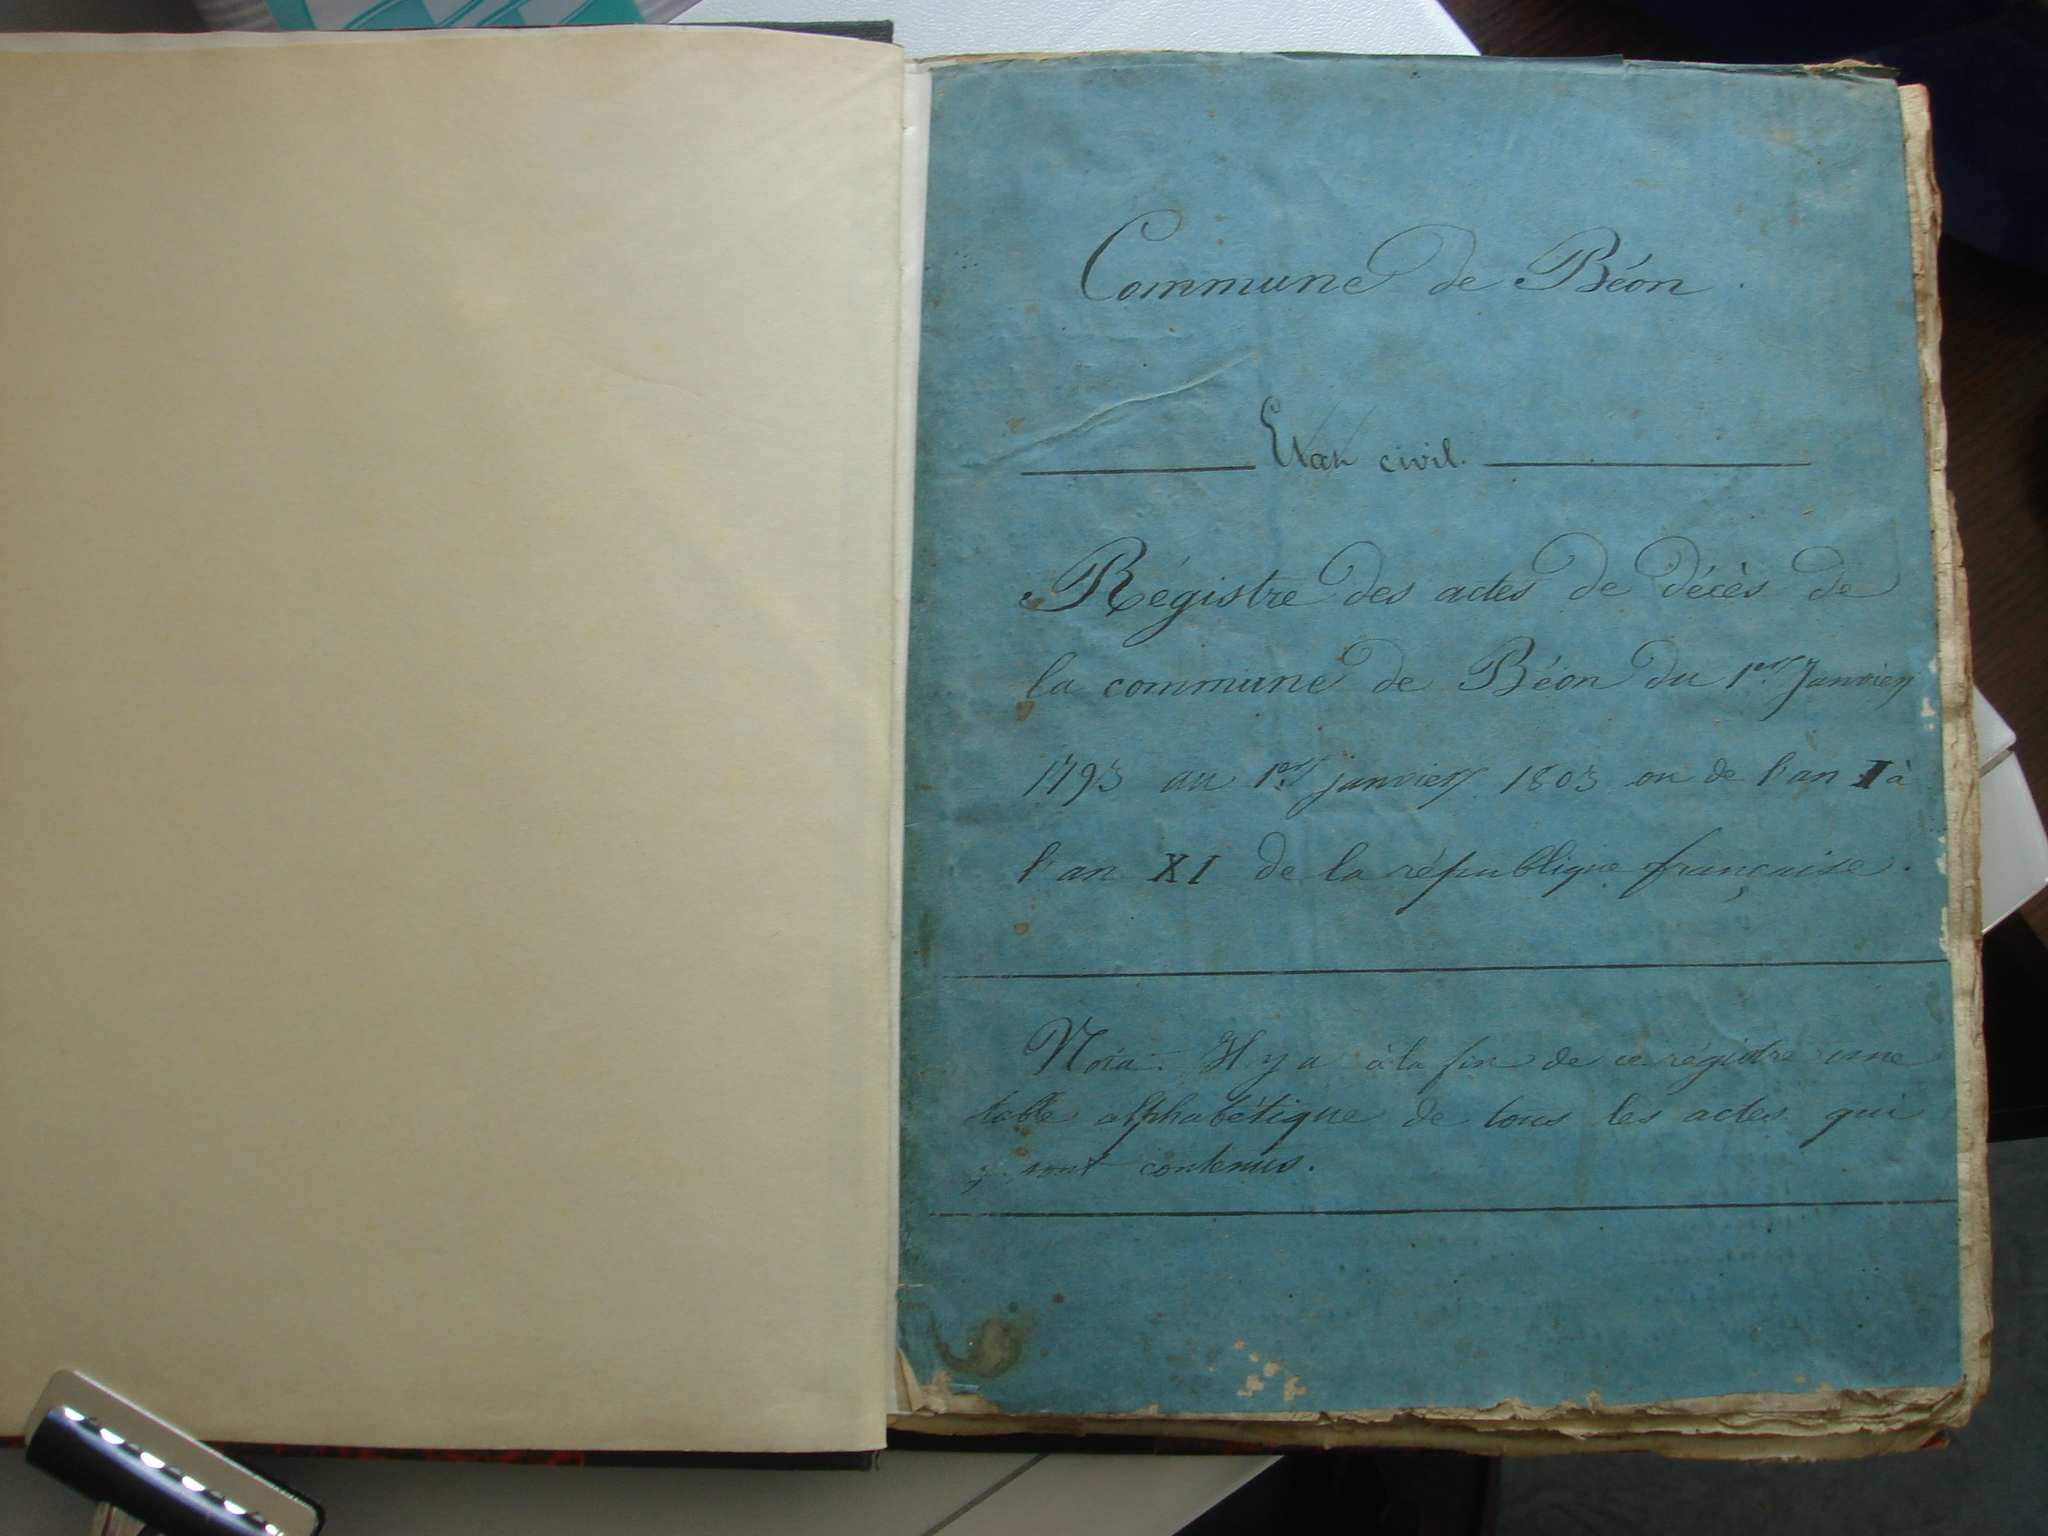 Commune de Béon.
Etat civil.
Régistre des actes de décès de
la commune de Béon du 1er Janvier
1793 au 1er janvier 1803 ou de l'an I à
l'an XI de la république française.
Nota. Il y a à la fin de ce régistre une
table alphabétique de tous les actes qui
y sont contenus.